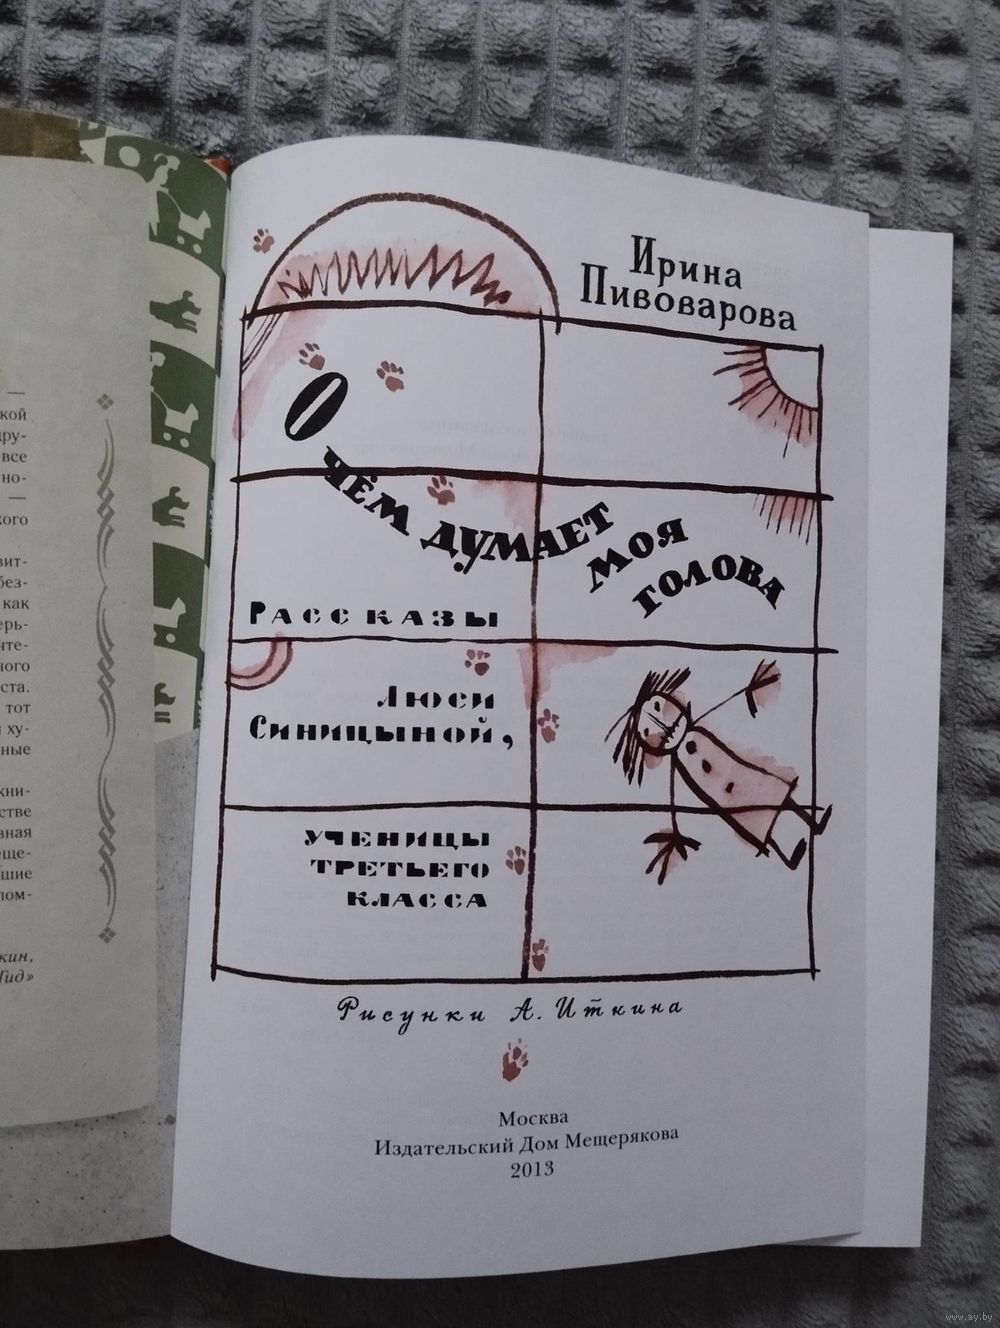 —
кой
дру-
все
но-
—
кого
вит-
без-
как
ерь-
нте-
ного
ста.
тот
и ху-
ные
кни-
стве
вная
еще-
шие
лом-
кин,
Гид»
Ирина
Пивоварова
О
чём думает
моя
голова
Рассказы
Люси
Синицыной,
ученицы
третьего
класса
Рисунки А. Иткина
Москва
Издательский Дом Мещерякова
2013
www.ay.by